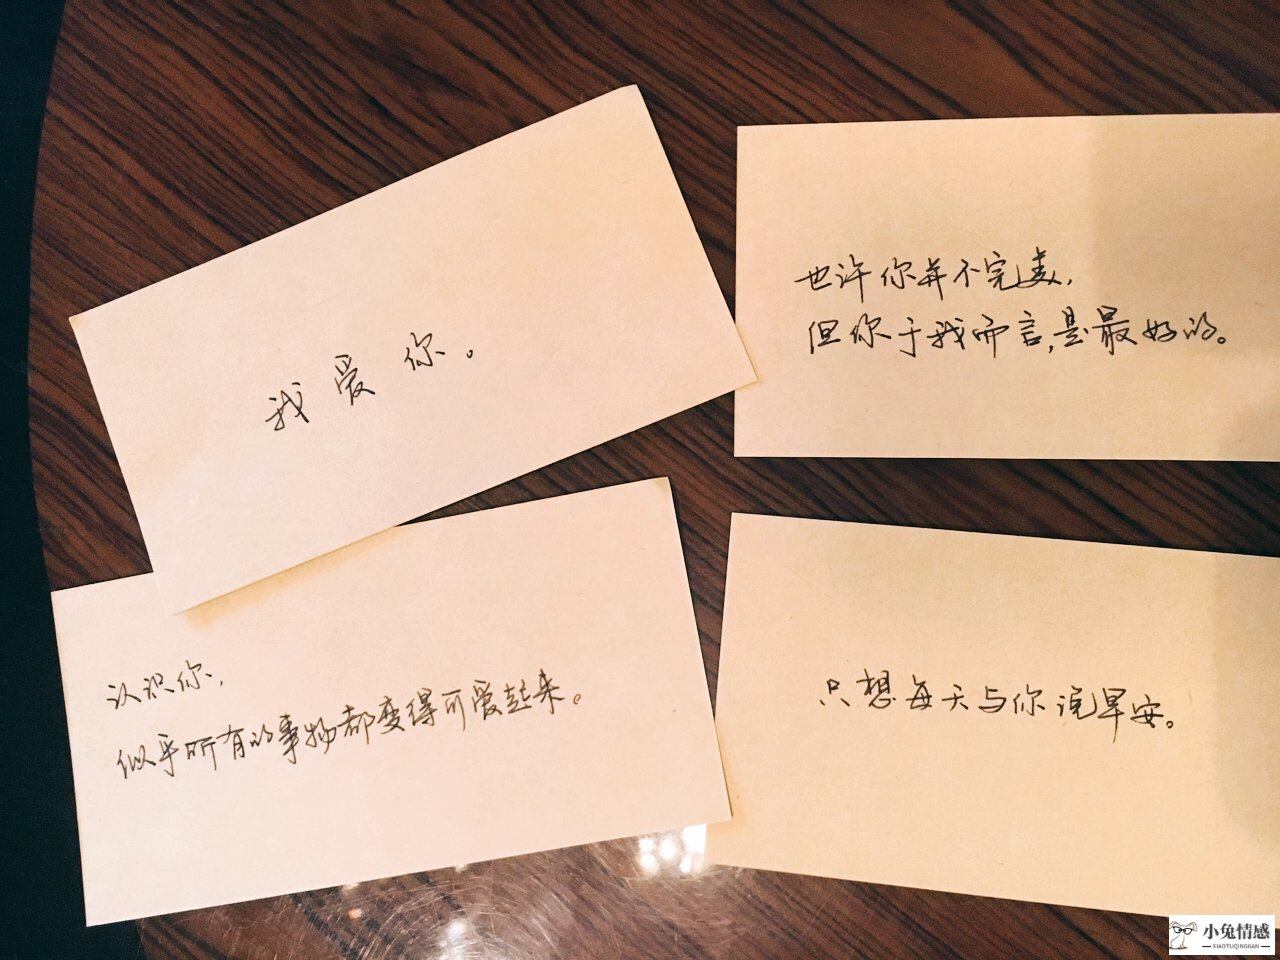 我爱你。
也许你并不完美,
但你于我而言,是最好的。
认识你,
似乎所有的事物都变得可爱起来。
只想每天与你说早安。
小兔情感
XIAOTUQINGGAN